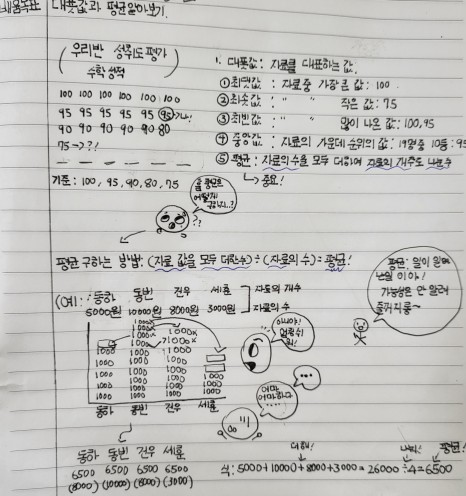 대푯값과 평균알아보기.
(우리반 성취도 평가
수학 성적)
100 100 100 100 100 100
95 95 95 95 95 95
90 90 90 90 90 80
75 → ??!
기준: 100, 95, 90, 80, 75
1. 대푯값: 자료를 대표하는 값.
① 최댓값 : 자료중 가장 큰 값: 100
② 최솟값 : " " 작은 값: 75
③ 최빈값 : " " 많이 나온 값: 100, 95
④ 중앙값 : 자료의 가운데 순위의 값: 19명중 10등: 95
⑤ 평균: 자료의 수를 모두 더하여 자료의 개수로 나눈수
↳ 중요!
??
평균 구하는 방법: (자료 값을 모두 더한수) ÷ (자료의 수) = 평균!
평균: 일이 일
가능성은 안 알려
줄거지롱~
(예: 동하 동빈 건우 세훈 자료의 개수
5000원 10000원 8000원 3000원 자료의 수
1000x
1000x
1000 1000
1000 1000 1000
1000 1000 1000
1000 1000 1000 1000
1000 1000 1000 1000
1000 1000 1000 1000
아니야!
...
어마
어마하다...
동하 동빈 건우 세훈
동하 동빈 건우 세훈
6500 6500 6500 6500
(5000) (10000) (8000) (3000)
더해! 나눠! 평균!
식: 5000+10000+8000+3000 = 26000 ÷4=6500